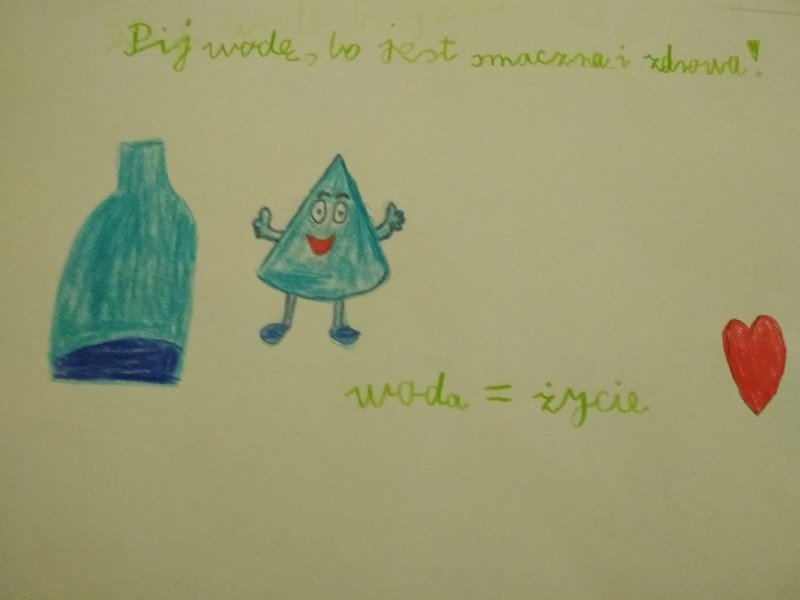 Pij wodę, bo jest smaczna i zdrowa!
woda = życie